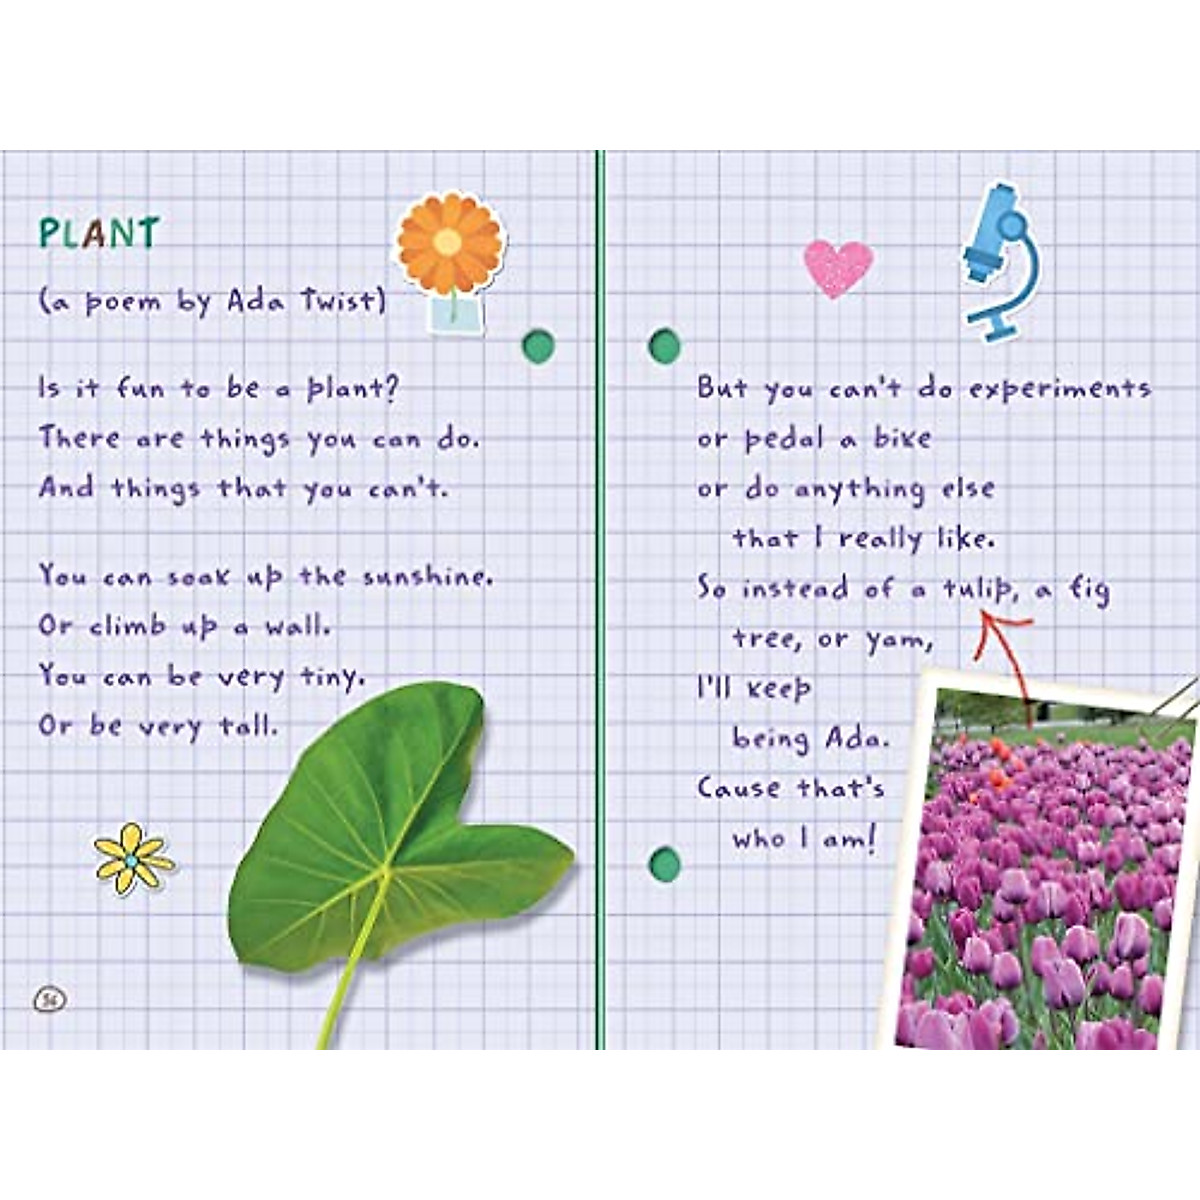 PLANT
(a poem by Ada Twist)
Is it fun to be a plant?
There are things you can do.
And things that you can't.
You can soak up the sunshine.
Or climb up a wall.
You can be very tiny.
Or be very tall.
56
But you can't do experiments
or pedal a bike
or do anything else
that I really like.
So instead of a tulip, a fig
tree, or yam,
I'll keep
being Ada.
Cause that's
who I am!